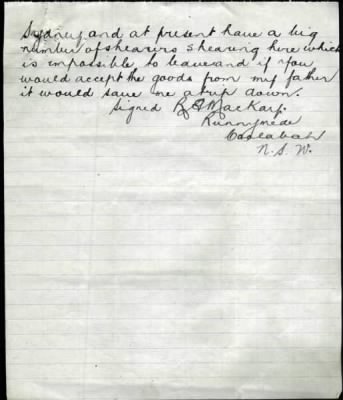 Sydney and at present have a big
number of shearers shearing here which
is impossible to leave and if you
would accept the goods from my father
it would save me a trip down.
Signed R G MacKay.
Runnymede
Coolabah
N. S. W.